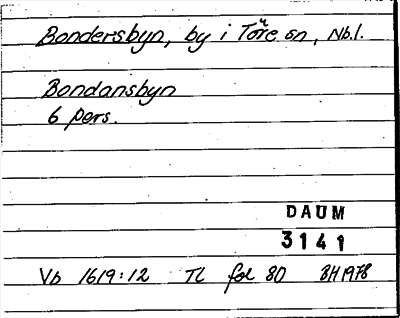 Bondersbyn, by i Töre sn, Nb.l.
Bondansbyn
6 pers.
DAUM
3141
Vb 1619:12 TL fol 80 BH 1978